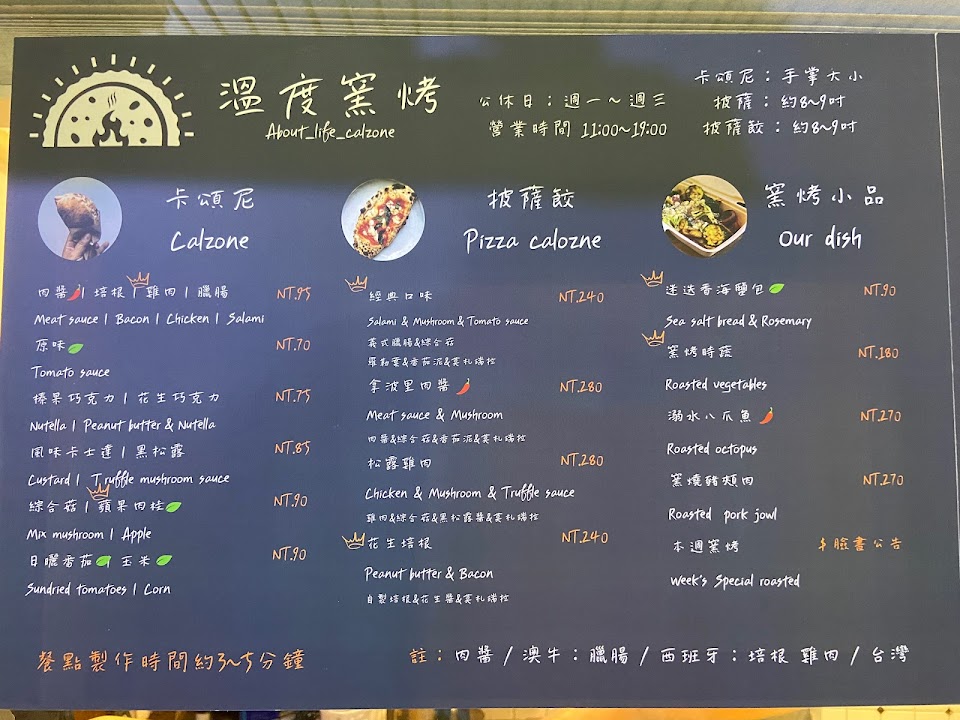 溫度窯烤
About_life_calzone
公休日：週一～週三
營業時間 11:00~19:00
卡頌尼：手掌大小
披薩：約8~9吋
披薩餃：約8~9吋
卡頌尼
Calzone
肉醬 | 培根 | 雞肉 | 臘腸 NT.95
Meat sauce | Bacon | Chicken | Salami
原味 NT.70
Tomato sauce
榛果巧克力 | 花生巧克力 NT.75
Nutella | Peanut butter & Nutella
風味卡士達 | 黑松露 NT.85
Custard | Truffle mushroom sauce
綜合菇 | 蘋果肉桂 NT.90
Mix mushroom | Apple
日曬番茄 | 玉米 NT.90
Sundried tomatoes | Corn
餐點製作時間約3~5分鐘
披薩餃
Pizza calozne
經典口味 NT.240
Salami & Mushroom & Tomato sauce
義式臘腸&綜合菇
羅勒葉&番茄泥&莫札瑞拉
拿波里肉醬 NT.280
Meat sauce & Mushroom
肉醬&綜合菇&番茄泥&莫札瑞拉
松露雞肉 NT.280
Chicken & Mushroom & Truffle sauce
雞肉&綜合菇&黑松露醬&莫札瑞拉
花生培根 NT.240
Peanut butter & Bacon
自製培根&花生醬&莫札瑞拉
窯烤小品
Our dish
迷迭香海鹽包 NT.90
Sea salt bread & Rosemary
窯烤時蔬 NT.180
Roasted vegetables
溺水八爪魚 NT.270
Roasted octopus
窯燒豬頰肉 NT.270
Roasted pork jowl
本週窯烤 $ 臉書公告
Week's Special roasted
註：肉醬 / 澳牛：臘腸 / 西班牙：培根 雞肉 / 台灣